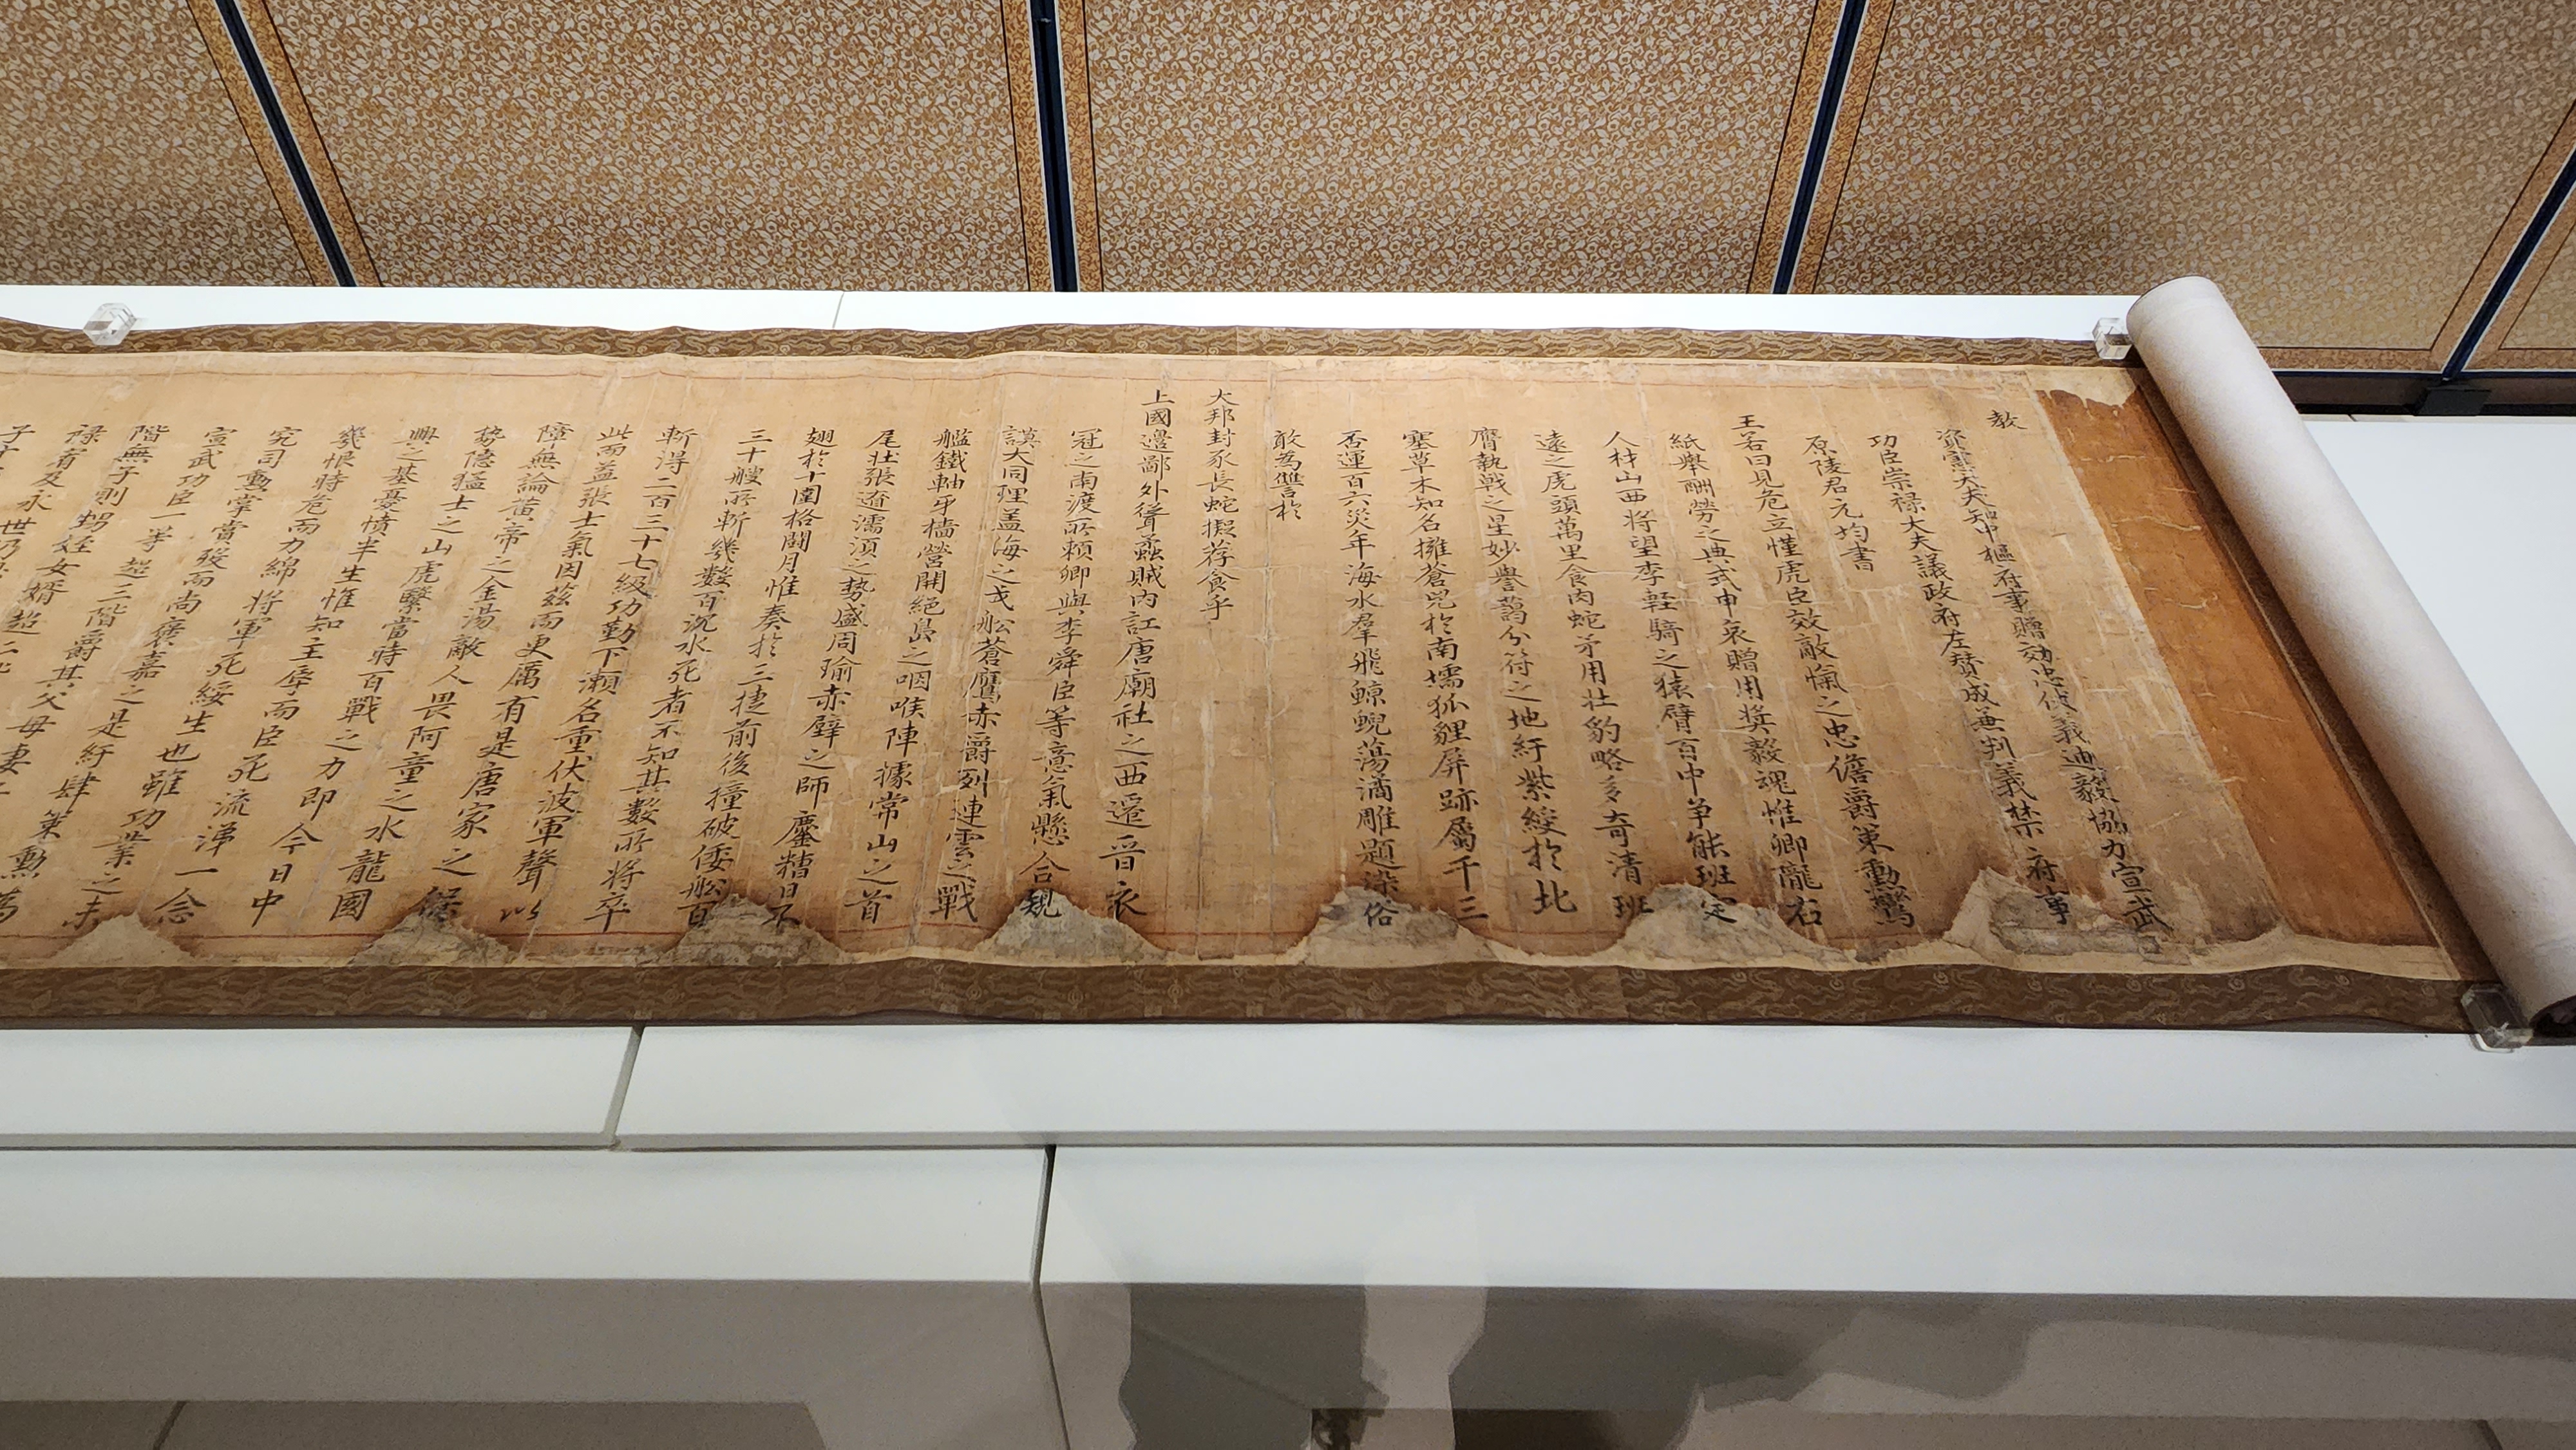 教
資憲大夫知中樞府事贈効忠仗義迪毅協力宣武
功臣崇祿大夫議政府左贊成兼判義禁府事
原陵君元均書
王若曰見危立慬虎臣效敵愾之忠儋爵策勳鸞
紙擧酬勞之典式申哀贈用奬毅魂惟卿隴右
人材山西將望李輕騎之猿臂百中爭能班定
遠之虎頭萬里食肉蛇矛用壯豹略多奇淸班
膺執戟之星妙譽藹分符之地紆紫綬於北
塞草木知名擁蒼兕於南壖狐貍屏跡屬千三
否運百六災年海水羣飛鯨鯢蕩潏雕題染俗
敢為讐於
大邦封豕長蛇擬荐食乎
上國邊鄙外聳蟊賊內訌唐廟社之西遷晉衣
冠之南渡所賴卿與李舜臣等意氣懸合規
謨大同狸益海之戎船蒼鷹赤爵列連雲之戰
艦鐵軸牙檣營開絕島之咽喉陣據常山之首
尾壯張遼濡湏之勢盛周瑜赤壁之師鏖糟日不
翅於十圍格鬪月惟奏於三捷前後撞破倭船百
三十艘所斬幾數百沉水死者不知其數所將卒
斬淂二百三十七級功勤下瀨名重伏波軍聲以
此而益張士氣因茲而更厲有是唐家之保
障無論黃帝之金湯敵人畏阿童之水龍國
勢隱猛士之山虎繄當時百戰之力即今日中
興之基憂憤半生惟知主辱而臣死流涕一念
幾恨時危而力綿將軍死綏生也雖功業之未
究司勳掌賞歿而尚褒嘉之是紆肆策勲為
宣武功臣一等超三階爵其父母妻子
階無子則甥姪女婿超二
祿宥及永世仍
子